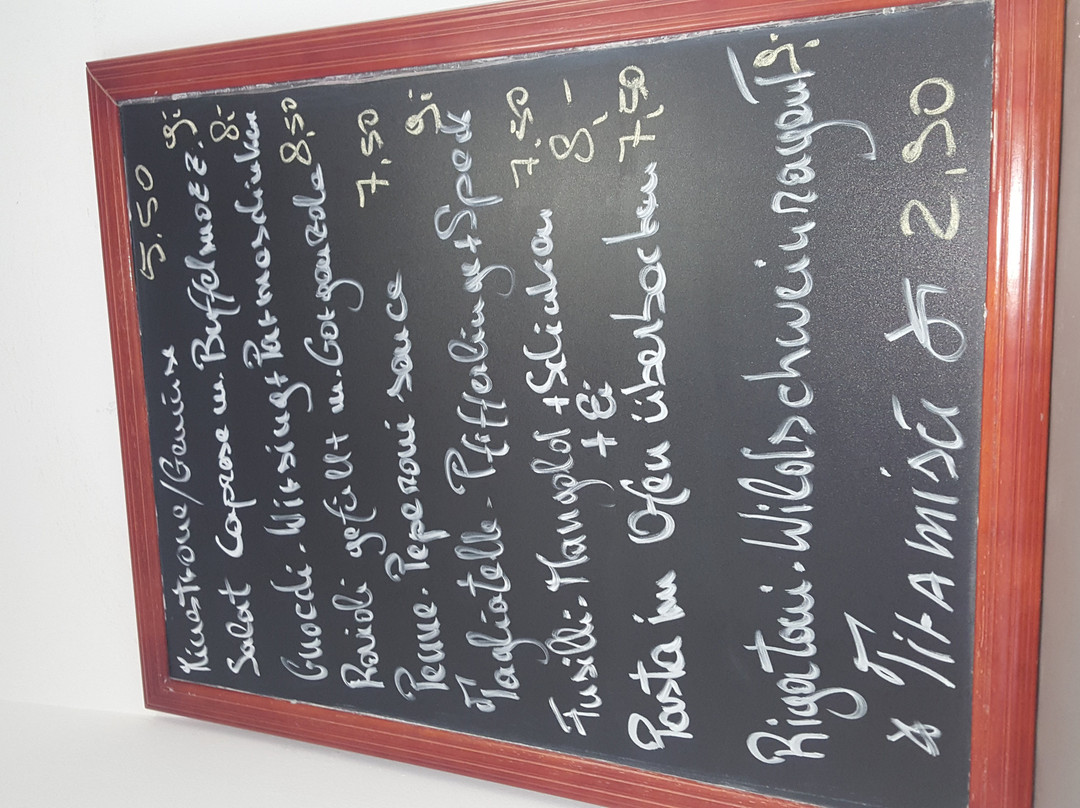 Minestrone/Gemüse 5,50
Salat Caprese m. Buffelmozz. 9,-
Gnocchi. Wirsing + Parmaschinken 8,-
Ravioli gefüllt m. Gorgonzola 8,50
Penne. Peperoni sauce 7,50
Tagliatelle- Pfifferlinge + Speck 9,-
Fusilli. Mangold + Schinken 7,50
+ Ei 8,-
Pasta im Ofen überbacken 7,50
Rigatoni. Wildschweinragout 9,-
* Tiramisú * 2,90